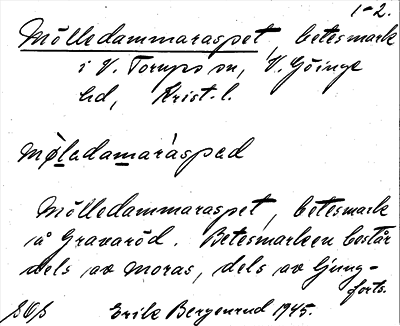 1-2.
Mölledammaraspet, betesmark
i V. Torups sn, V. Göinge
hd, Krist. l.
Møladamaràspad
Mölledammaraspet, betesmark
i å Gravaröd. Betesmarken består
dels av moras, dels av ljung-
forts.
Erik Bergenrud 1945.